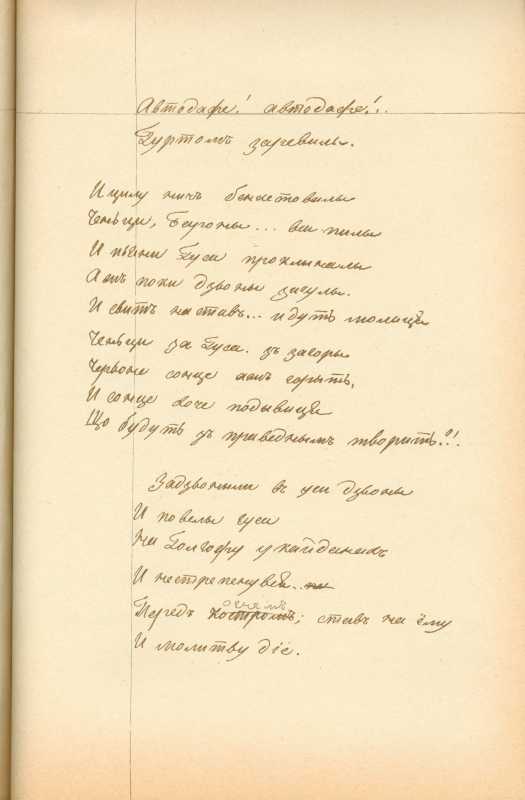 Автодафе! автодафе!..
Гуртомъ заревилы.
И цилу ничъ бенкетовилы
Ченьци, Бароны... вси пилы
И пьяни Гуса проклиналы
Ажъ поки дзвоны загулы.
И свитъ наставъ... идутъ молиця
Ченьци за Гуса. зъ загоры
Червоне сонце ажъ горыть,
И сонце хоче подывиця
Що будуть зъ праведнымъ творить?!.
Задзвонили въ уси дзвоны
И повелы гуса
На Голгофу у кайданахъ
И нестрепенувся.
Передъ костромъ; ставъ на ёму
огнемъ
И молитву діе.